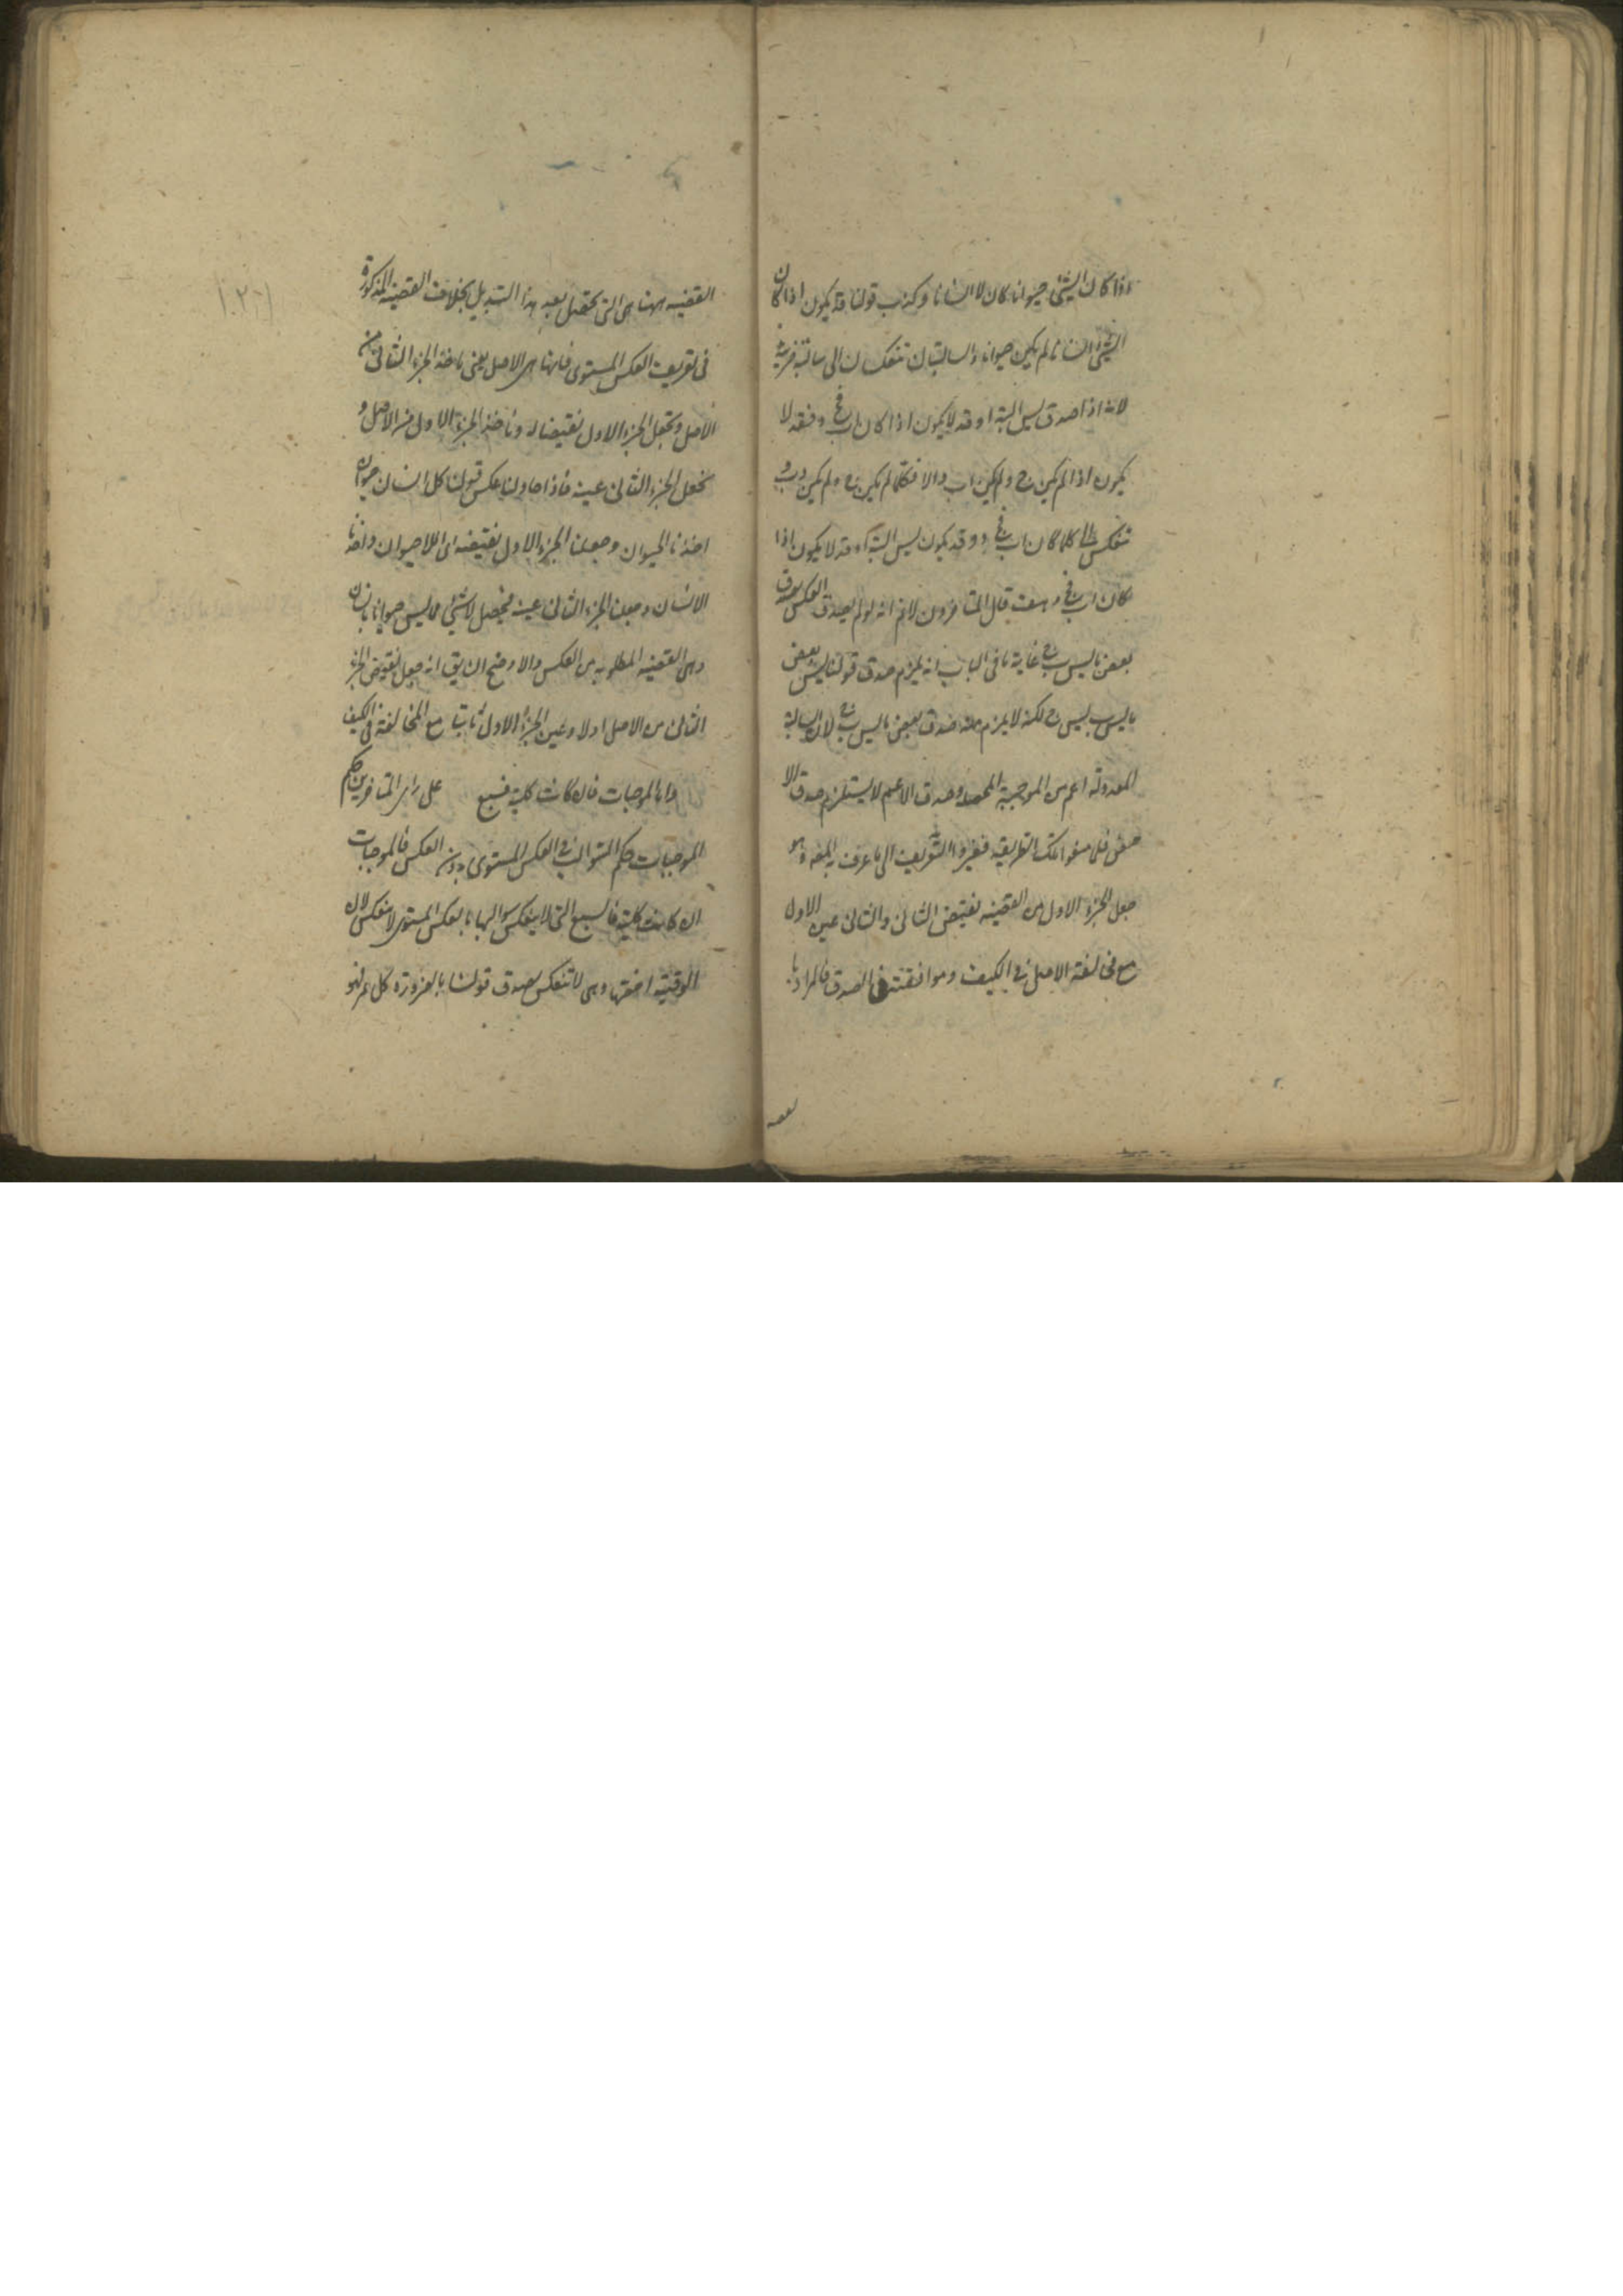 اذا كان الشئ حيوانا كان لا انسانا وكذب قولنا قد يكون اذا كان
الشئ انسانا لم يكن حيوانا والسالبتان تنعكسان الى سالبة جزئية
لانه اذا صدق ليس البتة او قد لا يكون اذا كان اب فج د فقد لا
يكون اذا لم يكن ج د لم يكن اب والا فكلما لم يكن ج د لم يكن اب و
تنعكس الى كلما كان اب فج د وقد يكون ليس البتة او قد لا يكون اذا
كان اب فج د هف قال المتاخرون لانم انه لو لم يصدق العكس لصدق
بعض ما ليس ب ج غاية ما فى الباب انه يلزم صدق قولنا ليس بعض
ما ليس ب ليس ج لكنه لا يلزم منه صدق بعض ما ليس ب ج لان السالبة
المعدولة اعم من الموجبة المحصلة وصدق الاعم لا يستلزم صدق الا
خص فلما منعوا تلك الطريقة فغيروا التعريف الى ما عرف به المصنف وهو
جعل الجزء الاول من القضية نقيض الثانى والثانى عين الاول
مع مخالفة الاصل فى الكيف وموافقته فى الصدق فالمراد با
لقضيه
القضيه ههنا هى التى تحصل بعد هذا التبديل بخلاف القضيه المذكورة
فى تعريف العكس المستوى فانها هى الاصل يعنى ناخذ الجزء الثانى من
الاصل ونجعل الجزء الاول نقيضا له وناخذ الجزء الاول من الاصل و
نجعل الجزء الثانى عينه فاذا حاولنا عكس قولنا كل انسان حيوان
اخذنا الحيوان وجعلنا الجزء الاول نقيضه اى اللاحيوان واخذنا
الانسان وجعلنا الجزء الثانى عينه فيحصل لا شئ مما ليس حيوانا بانسان
وهى القضيه المطلوبه من العكس والاوضح ان يق انه جعل نقيض الجزء
الثانى من الاصل اولا وعين الجزء الاول ثانيا مع المخالفة فى الكيف
واما الموجبات فان كانت كلية فسبع على راى المتاخرين حكم
الموجبات حكم السوالب فى العكس المستوى بدون العكس فالموجبات
ان كانت كلية فالسبع التى لا ينعكس سوالبها بالعكس المستوى لا ينعكس لان
الوقتية اخصها وهى لا تنعكس لصدق قولنا بالضرورة كل قمر فهو